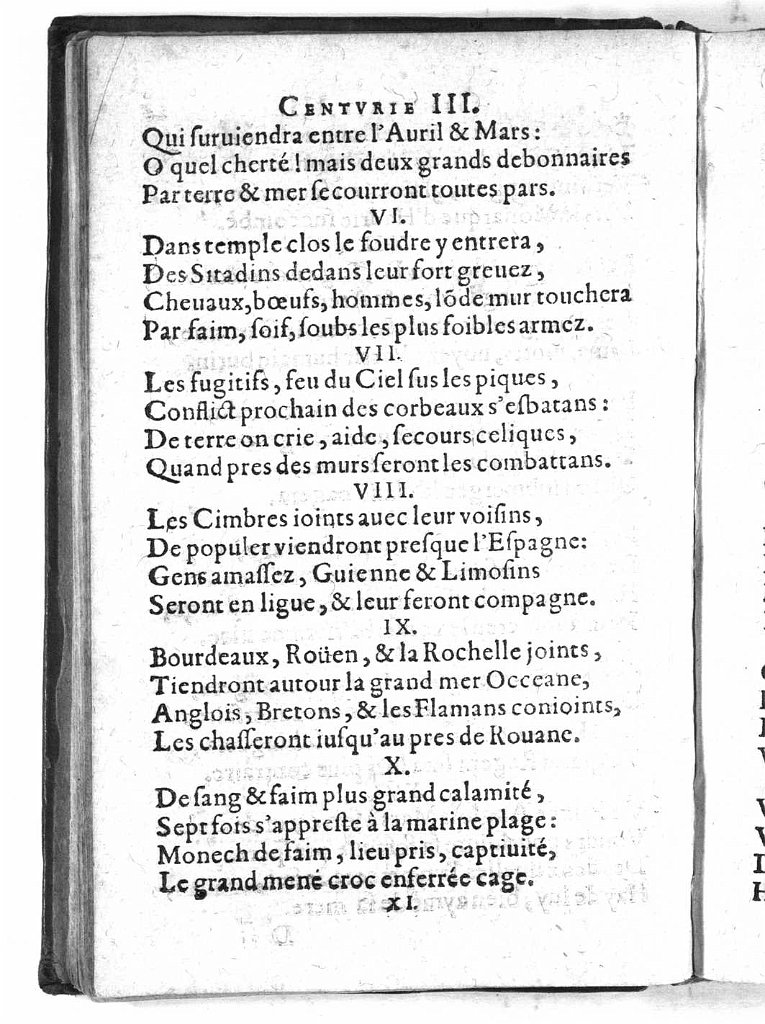 CENTVRIE III.
Qui ſuruiendra entre l'Auril & Mars:
O quel cherté! mais deux grands debonnaires
Par terre & mer ſecourront toutes pars.
VI.
Dans temple clos le foudre y entrera,
Des Sitadins dedans leur fort greuez,
Cheuaux, bœufs, hommes, lõde mur touchera
Par faim, ſoif, ſoubs les plus foibles armez.
VII.
Les fugitifs, feu du Ciel ſus les piques,
Conflict prochain des corbeaux s'eſbatans:
De terre on crie, aide, ſecours celiques,
Quand pres des murs ſeront les combattans.
VIII.
Les Cimbres ioints auec leur voiſins,
De populer viendront preſque l'Eſpagne:
Gens amaſſez, Guienne & Limoſins
Seront en ligue, & leur feront compagne.
IX.
Bourdeaux, Roüen, & la Rochelle joints,
Tiendront autour la grand mer Occeane,
Anglois, Bretons, & les Flamans conioints,
Les chaſſeront iuſqu'au pres de Rouane.
X.
De ſang & faim plus grand calamité,
Sept fois s'appreſte à la marine plage:
Monech de faim, lieu pris, captiuité,
Le grand mené croc enferrée cage.
XI.